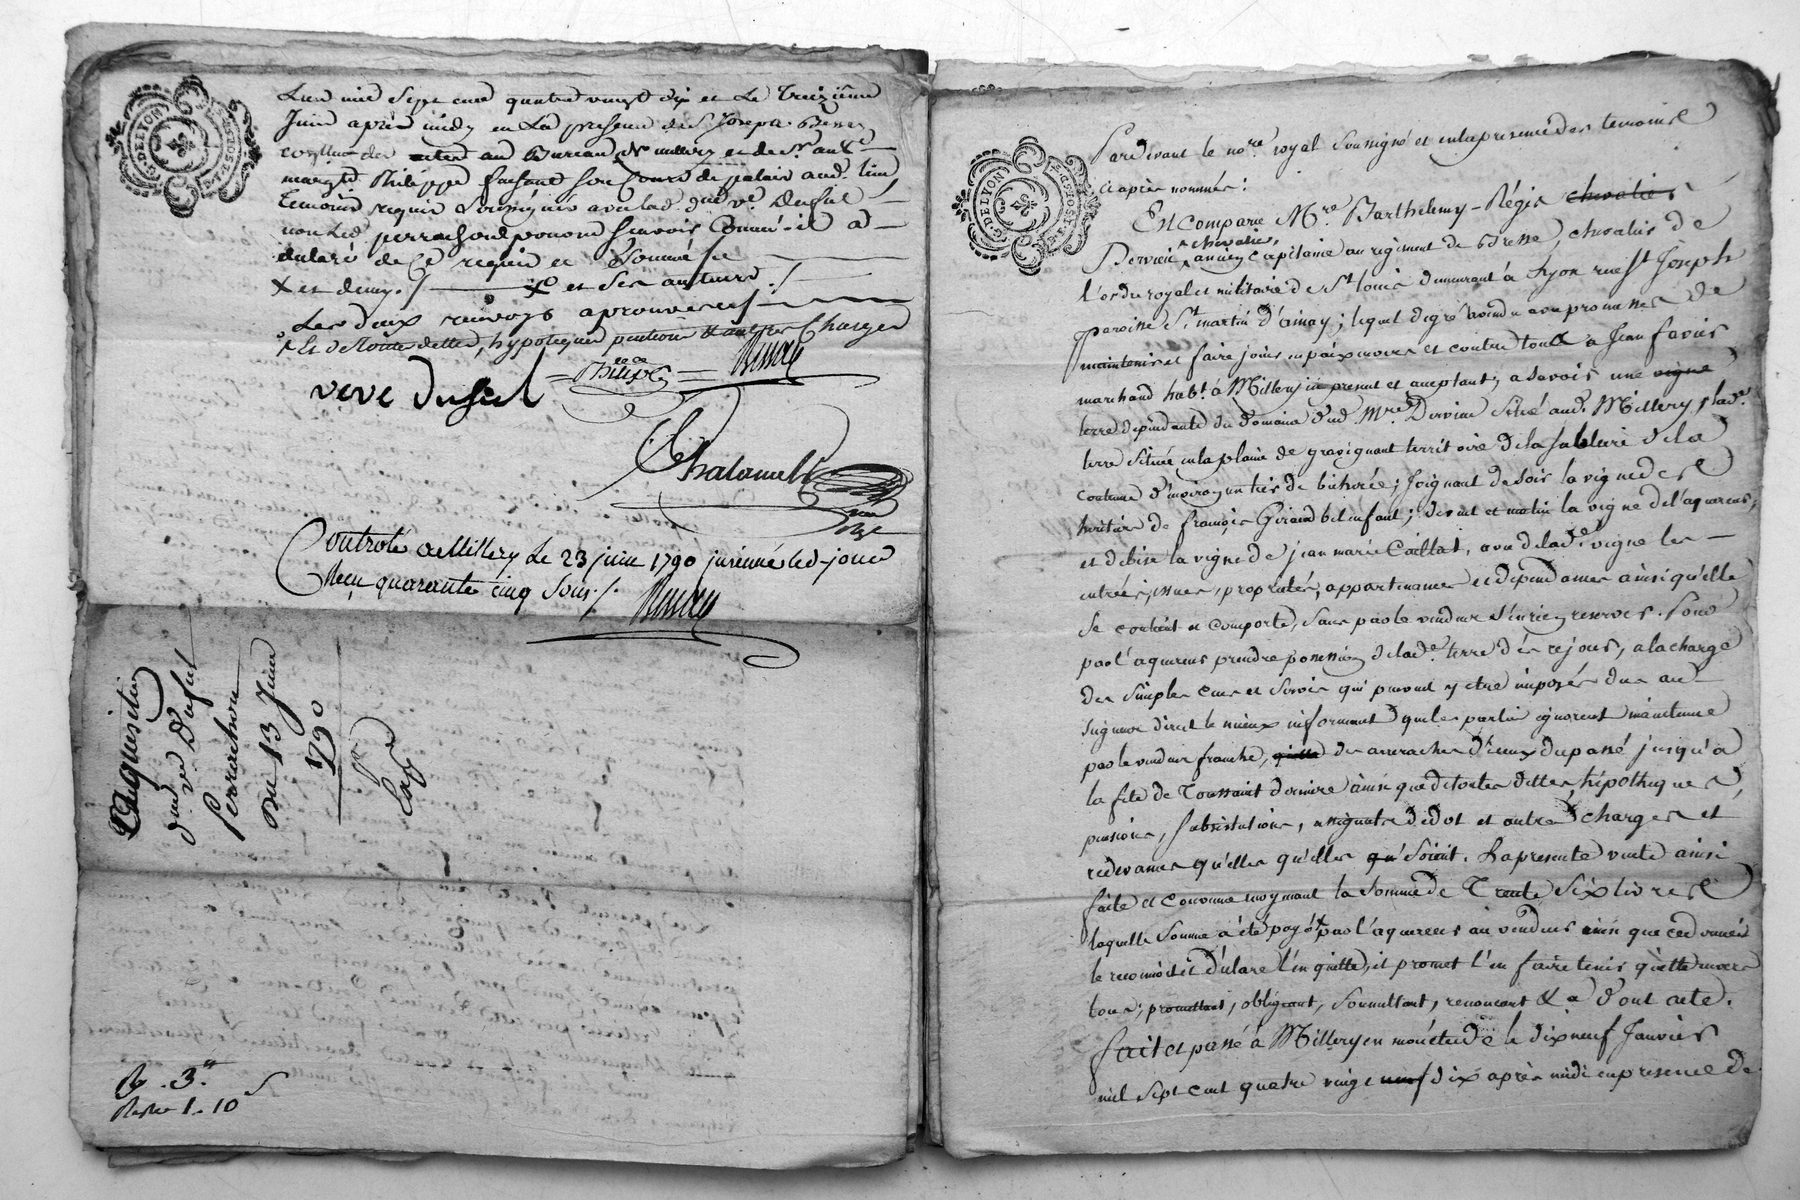 G. DE LYON
L'an mil Sept cent quatre vingt dix et Le Treizième
Juin après midy en La presence de Sr Joseph
commis des actes au Bureau de millery et de Sr
Philippe faisant son Cours de palais aud. lieu
Temoins requis Soussignés avec lad. due ve. Dufut
non led. perrachon pour ne Scavoir Comme il a
declaré de Ce requis et Sommé
X et demy ./. X et Ses auteurs ./.
Les deux renvoys aprouvées
et de Toutes dettes, hypoteques pentions et autres Charges
veve dufut
Philipe
Controlé a Millery Le 23 juin 1790 led. jour
Reçu quarante cinq Sous ./.
Aquisition
dud. ve Dufut
Perrachon
Du 13 Juin
1790
Ro. 3.
Reste 1. 10 S
G. DE LYON
Pardevant le nore. royal Soussigné et en la presence des temoins
ci après nommés :
En Comparu Mre Barthelemy-Régis chevalier
Dervieu chevalier, ancien Capitaine au regiment de Bresse, chevalier de
l'ordre royal et militaire de St louis demeurant à Lyon rue St Joseph
paroisse St martin d'ainay ; lequel de gré a vendu avec promesses de
maintenir et faire jouir en paix envers et contre tous à Jean favier
marchand habt. à Millery ici present et acceptant, a Savoir une vigne
terre dependante du domaine dud. Mre Dervieu Situé aud. Millery, lade.
terre Située en la plaine de gravignant territoire de la Sabliere de la
contenue d'environ un tiers de bicherée ; Joignant de Soir la vigne des
heritiers de françois Giraud bel enfant ; de vent et matin la vigne de l'aquereur,
et de bise la vigne de jean marie Caillat, avec de lade. vigne les
entrées, issues, proprietés, appartenances et dependances ainsi qu'elle
Se contient et comporte, Sans par le vendeur S'en rien reserver. Pour
par l'aquereur prendre possession de lade. terre dès ce jour, a la charge
des Simples cens et Servis qui peuvent y etre imposés dus au
Seigneur direct le mieux informant que les parties ignorent maintenue
par le vendeur franche, quitte des arrerages d'iceux du passé jusqu'à
la fete de Toussaint derniere ainsi que de toutes dettes, hipotheques,
pensions, Substitutions, assignats de dot et autres charges et
redevances qu'elles qu'elles qu' Soient. La presente vente ainsi
faite et convenue moyenant la Somme de Trente Six livres
laquelle Somme a été payé par l'aquereur au vendeur ainsi que ced. vendeur
le reconnoit et declare l'en quitte, et promet l'en faire tenir quitte envers
tous ; promettant, obligeant, Soumettant, renonçant &a dont acte.
fait et passé à Millery en mon étude le dix neuf Janvier
mil Sept cent quatre vingt neuf dix après midi en presence de